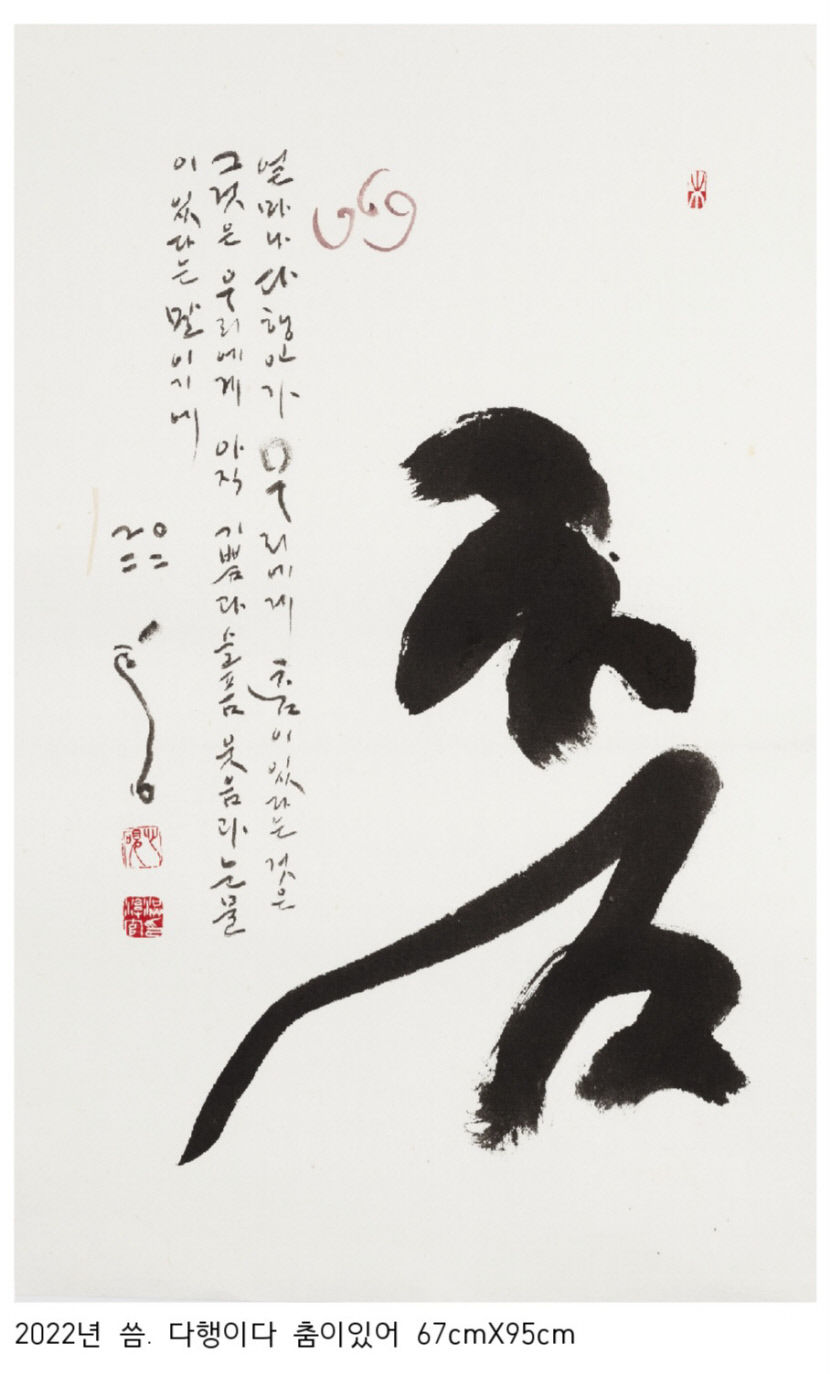 춤
얼마나 다행인가 우리에게 춤이 있다는 것은
그것은 우리에게 아직 기쁨과 슬픔 웃음과 눈물
이 있다는 말이기에
2022년 씀. 다행이다 춤이있어 67cmX95cm